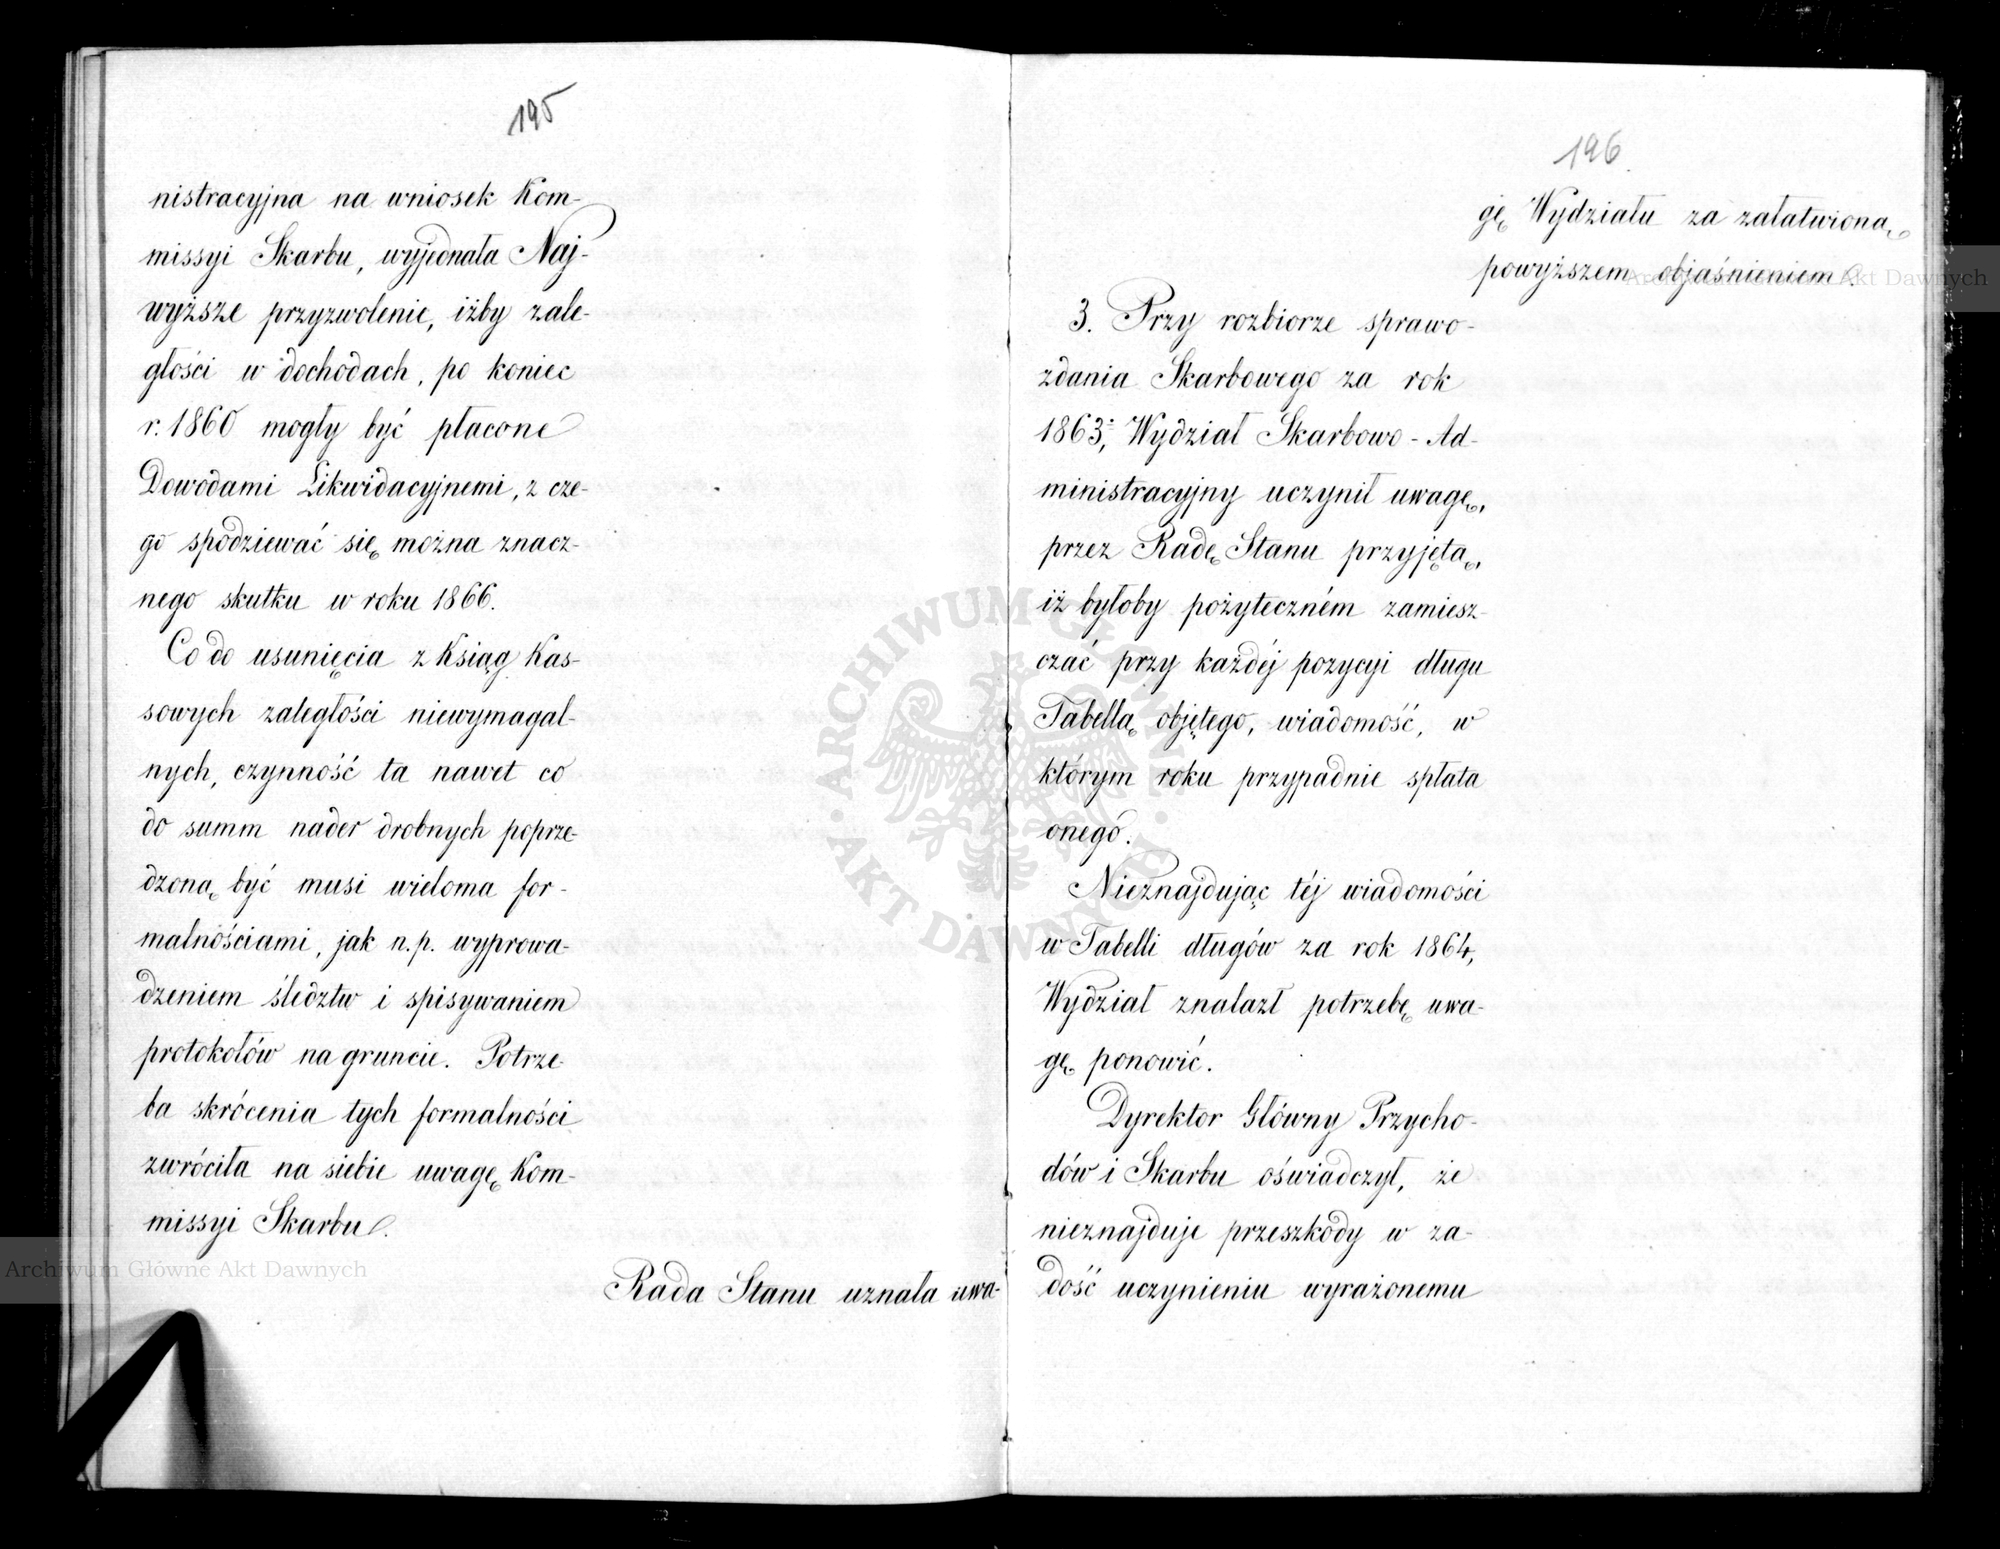 195
nistracyjna na wniosek Kom-
missyi Skarbu, wyjednała Naj-
wyższe przyzwolenie, iżby zale-
głości w dochodach, po koniec
r. 1860 mogły być płacone
Dowodami Likwidacyjnemi, z cze-
go spodziewać się można znacz-
nego skutku w roku 1866.
Co do usunięcia z Ksiąg Kas-
sowych zaległości niewymagal-
nych, czynność ta nawet co
do summ nader drobnych poprze-
dzoną być musi wieloma for-
malnościami, jak n.p. wyprowa-
dzeniem śledztw i spisywaniem
protokołów na gruncie. Potrze-
ba skrócenia tych formalności
zwróciła na siebie uwagę Kom-
missyi Skarbu.
Rada Stanu uznała uwa-
196.
gę Wydziału za załatwioną
powyższem objaśnieniem.
3. Przy rozbiorze sprawo-
zdania Skarbowego za rok
1863, Wydział Skarbowo-Ad-
ministracyjny uczynił uwagę,
przez Radę Stanu przyjętą,
iż byłoby pożyteczném zamiesz-
czać przy każdéj pozycyi długu
Tabellą objętego, wiadomość, w
którym roku przypadnie spłata
onego.
Nieznajdując téj wiadomości
w Tabelli długów za rok 1864,
Wydział znalazł potrzebę uwa-
gę ponowić.
Dyrektor Główny Przycho-
dów i Skarbu oświadczył, że
nieznajduje przeszkody w za-
dość uczynieniu wyrażonemu
ARCHIWUM GŁÓWNE
AKT DAWNYCH
Archiwum Główne Akt Dawnych
Archiwum Główne Akt Dawnych